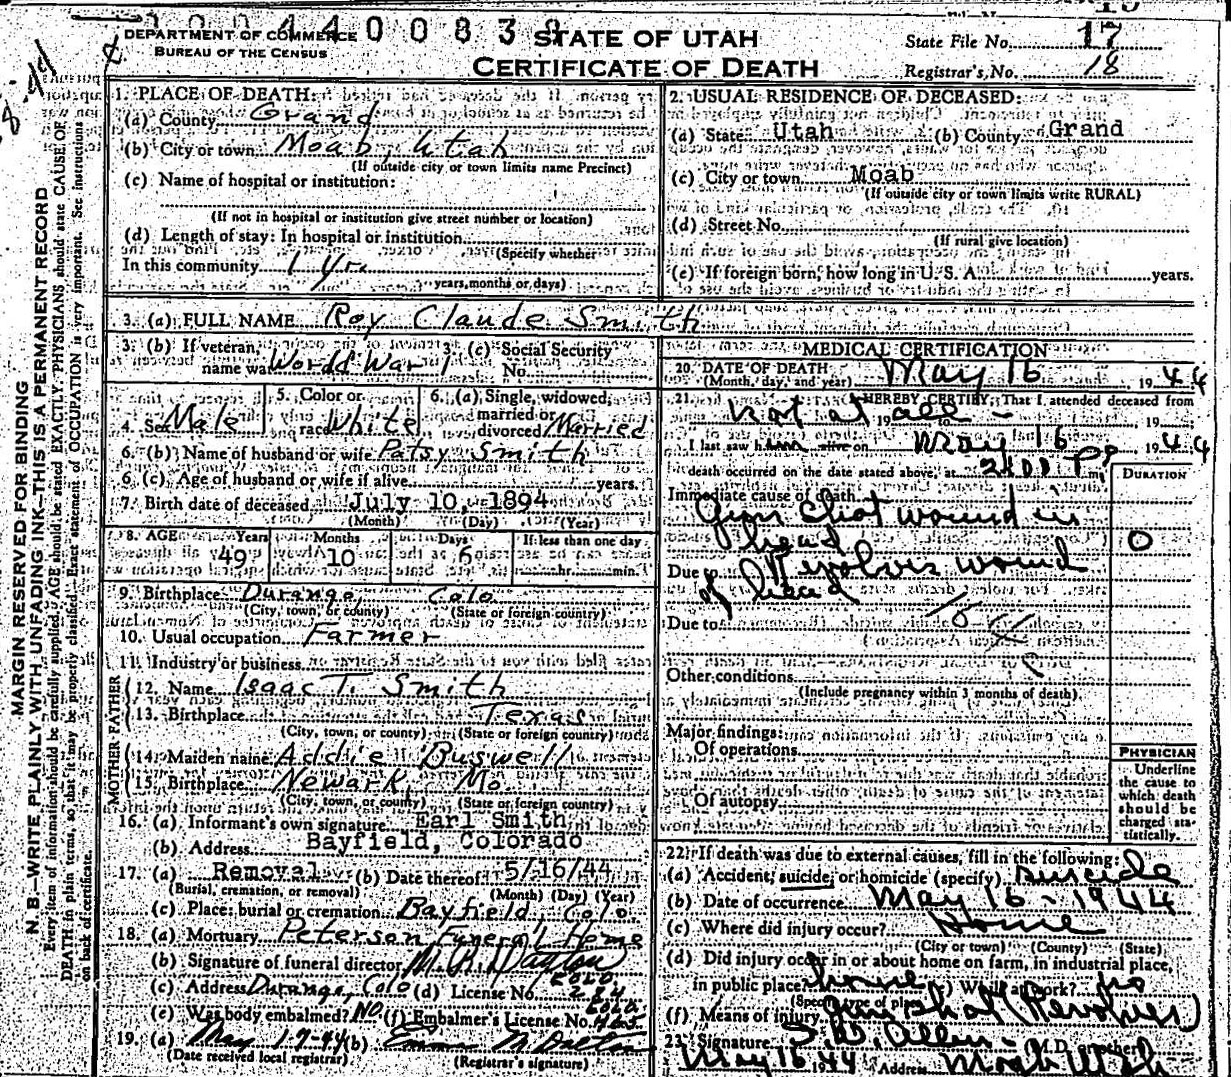 1004400838
DEPARTMENT OF COMMERCE
BUREAU OF THE CENSUS
STATE OF UTAH
CERTIFICATE OF DEATH
State File No. 17
Registrar's No. 18
MARGIN RESERVED FOR BINDING
N. B.—WRITE PLAINLY WITH UNFADING INK—THIS IS A PERMANENT RECORD
Every item of information should be carefully supplied. AGE should be stated EXACTLY. PHYSICIANS should state CAUSE OF
DEATH in plain terms, so that it may be properly classified. Exact statement of OCCUPATION is very important. See instructions
on back of certificate.
1. PLACE OF DEATH:
(a) County Grand
(b) City or town Moab, Utah
(If outside city or town limits name Precinct)
(c) Name of hospital or institution:
(If not in hospital or institution give street number or location)
(d) Length of stay: In hospital or institution
(Specify whether
In this community 1 yr.
years, months or days)
2. USUAL RESIDENCE OF DECEASED:
(a) State Utah (b) County Grand
(c) City or town Moab
(If outside city or town limits write RURAL)
(d) Street No.
(If rural give location)
(e) If foreign born, how long in U. S. A. years.
3. (a) FULL NAME Roy Claude Smith
3. (b) If veteran, name war World War 1 3. (c) Social Security No.
4. Sex Male 5. Color or race White 6. (a) Single, widowed, married or divorced Married
6. (b) Name of husband or wife Patsy Smith
6. (c) Age of husband or wife if alive years.
7. Birth date of deceased July 10, 1894
(Month) (Day) (Year)
8. AGE Years Months Days If less than one day
49 10 6 hr. min.
9. Birthplace Durango, Colo
(City, town, or county) (State or foreign country)
10. Usual occupation Farmer
11. Industry or business
FATHER
12. Name Isaac T. Smith
13. Birthplace Texas
(City, town, or county) (State or foreign country)
MOTHER
14. Maiden name Addie Buswell
15. Birthplace Newark, Mo.
(City, town, or county) (State or foreign country)
16. (a) Informant's own signature Earl Smith
(b) Address Bayfield, Colorado
17. (a) Removal (b) Date thereof 5/16/44
(Burial, cremation, or removal) (Month) (Day) (Year)
(c) Place: burial or cremation Bayfield, Colo.
18. (a) Mortuary Peterson Funeral Home
(b) Signature of funeral director M. R. Dayton
(c) Address Durango, Colo (d) License No. Colo.
(e) Was body embalmed? NO (f) Embalmer's License No. Colo.
19. (a) May 17-44 (b)
(Date received local registrar) (Registrar's signature)
MEDICAL CERTIFICATION
20. DATE OF DEATH May 16, 1944
(Month, day, and year)
21. I HEREBY CERTIFY, That I attended deceased from
Not at all - 19 to 19
I last saw him alive on May 16, 1944
death occurred on the date stated above, at 2:00 P m.
DURATION
Immediate cause of death
Gun shot wound in
head
0
Due to Revolver wound
of head
Due to
Other conditions
(Include pregnancy within 3 months of death)
Major findings:
Of operations
Of autopsy
PHYSICIAN
Underline
the cause to
which death
should be
charged sta-
tistically.
22. If death was due to external causes, fill in the following:
(a) Accident, suicide, or homicide (specify) suicide
(b) Date of occurrence May 16 - 1944
(c) Where did injury occur? Home
(City or town) (County) (State)
(d) Did injury occur in or about home on farm, in industrial place,
in public place? home (e) While at work? no
(Specify type of place)
(f) Means of injury Gun shot (Revolver)
23. Signature S. W. Allen - M.D. or other
May 16 1944 Address Moab Utah